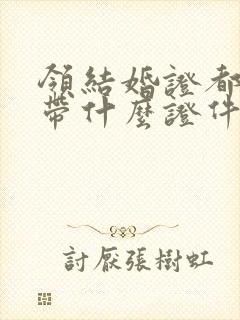 領結婚證都
帶什麼證件
討厭張樹虹